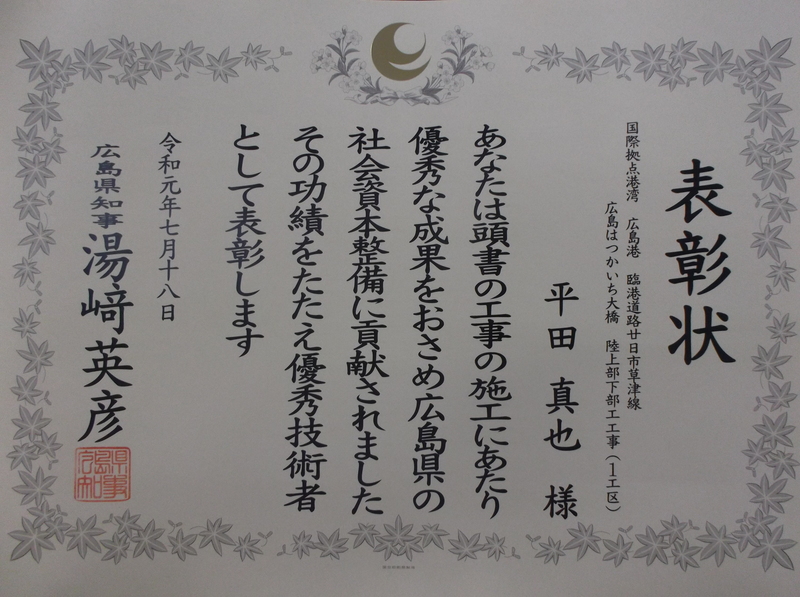 表彰状
国際拠点港湾 広島港 臨港道路廿日市草津線
広島はつかいち大橋 陸上部下部工工事(1工区)
平田 真也 様
あなたは頭書の工事の施工にあたり
優秀な成果をおさめ広島県の
社会資本整備に貢献されました
その功績をたたえ優秀技術者
として表彰します
令和元年七月十八日
広島県知事 湯﨑英彦